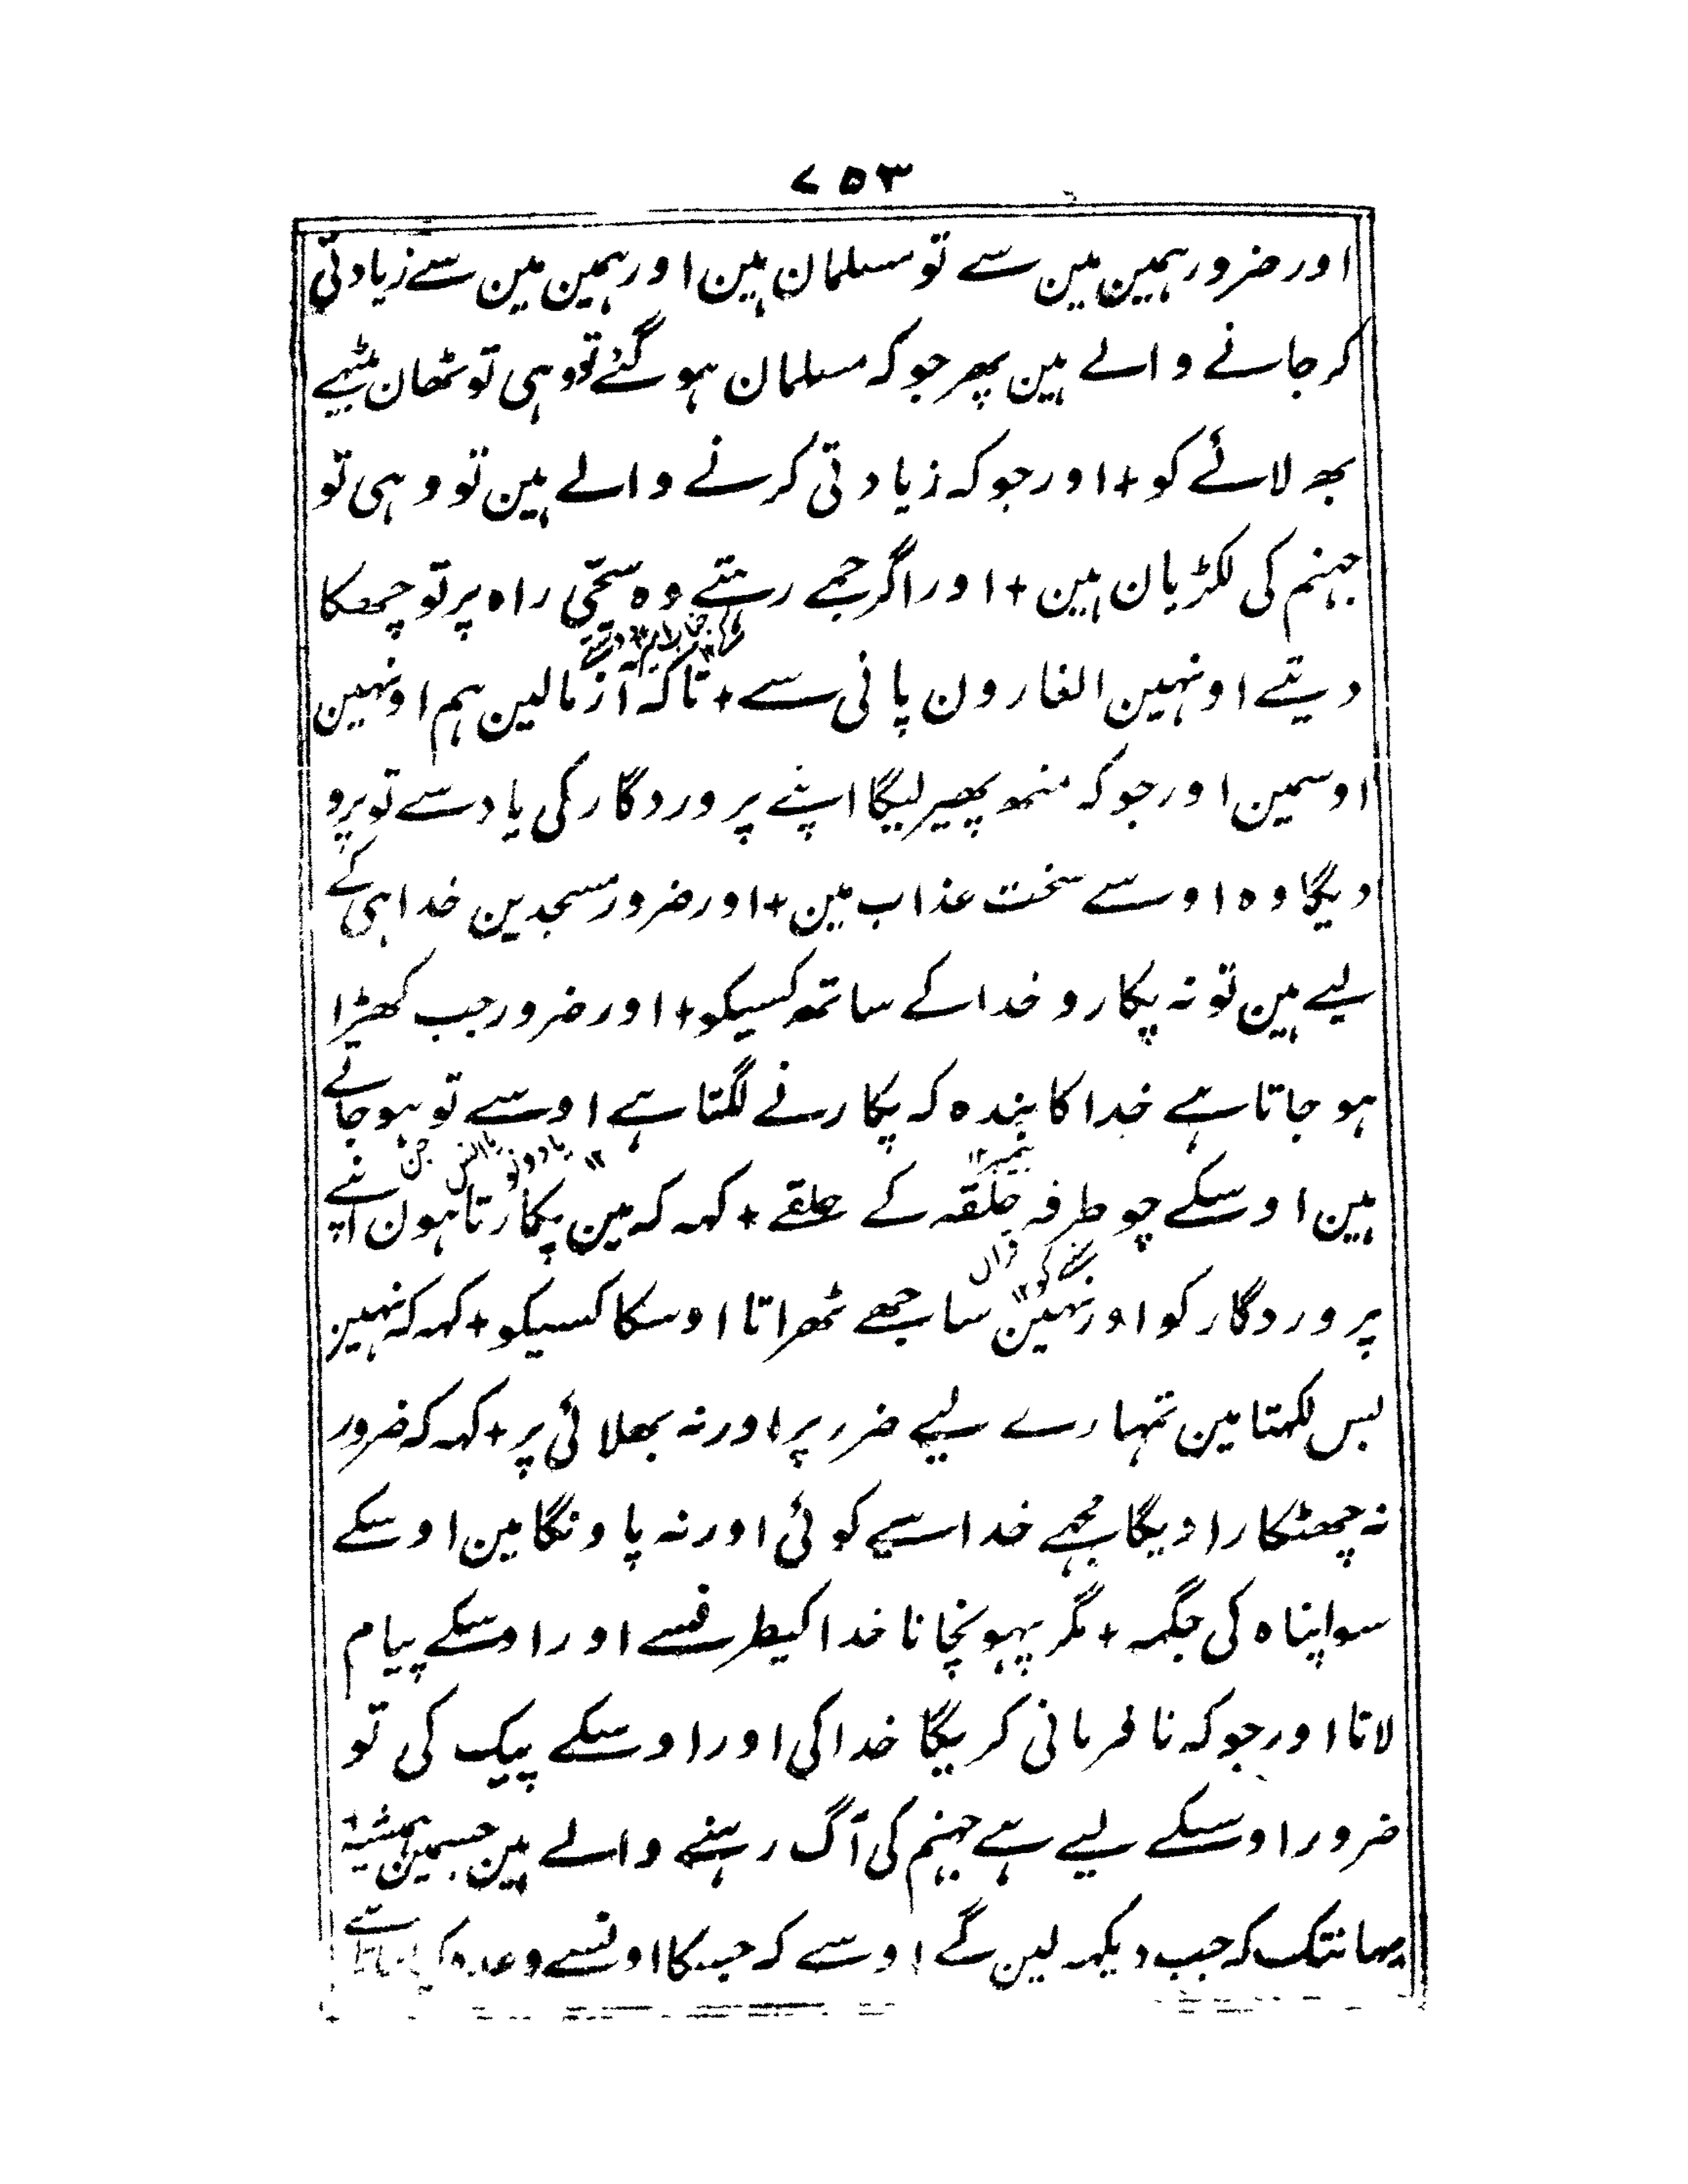 ۷۵۳
اور ضرور ہمین مین سے تو مسلمان ہین اور ہمین مین سے زیادتی
کر جانے والے ہین پھر جو کہ مسلمان ہو گئے تو وہی تو ٹھان بیٹھے
بھلائے کو + اور جو کہ زیادتی کرنے والے ہین تو وہی تو
جہنم کی لکڑیان ہین + اور اگر جمے رہتے وہ سچی راہ پر تو چھکا
دیتے اونہین الغارون پانی سے + تاکہ آزمالین ہم اونہین
اوسمین اور جو کہ منھ پھیر لیگا اپنے پروردگار کی یاد سے تو پرو
دیگا وہ اوسے سخت عذاب مین + اور ضرور مسجدین خدا ہی کے
لیے ہین تو نہ پکارو خدا کے ساتھ کسیکو + اور ضرور جب کھڑا
ہو جاتا ہے خدا کا بندہ کہ پکارنے لگتا ہے اوسے تو ہو جاتے
ہین اوسکے چو طرفہ حلقہ کے حلقے + کہہ کہ مین پکارتا ہون اپنے
پروردگار کو اور نہین ساجھے ٹھراتا اوسکا کسیکو + کہہ کہ نہین
بس لکھتا مین تمہارے لیے ضرر پر اور نہ بھلائی پر + کہہ کہ ضرور
نہ چھٹکارا دیگا مجھے خدا سے کوئی اور نہ پاونگا مین اوسکے
سوا پناہ کی جگہہ + مگر پہونچانا خدا کیطرفسے اور اوسکے پیام
لانا اور جو کہ نافرمانی کریگا خدا کی اور اوسکے پیک کی تو
ضرور اوسکے لیے ہے جہنم کی آگ رہنے والے ہین جسمین ہمیشہ
یہانتک کہ جب دیکھہ لین گے اوسے کہ جسکا اونسے وعدہ